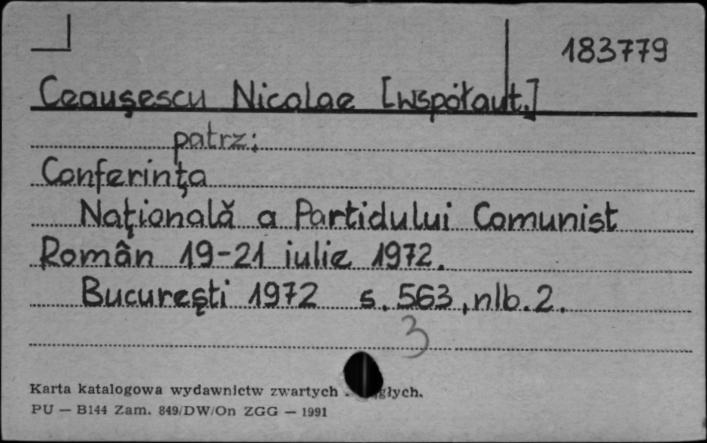 183779
Ceauşescu Nicolae [współaut.]
patrz:
Conferinţa
Naţională a Partidului Comunist
Român 19-21 iulie 1972.
Bucureşti 1972 s. 563, nlb. 2.
3
Karta katalogowa wydawnictw zwartych
PU — B144 Zam. 849/DW/On ZGG — 1991